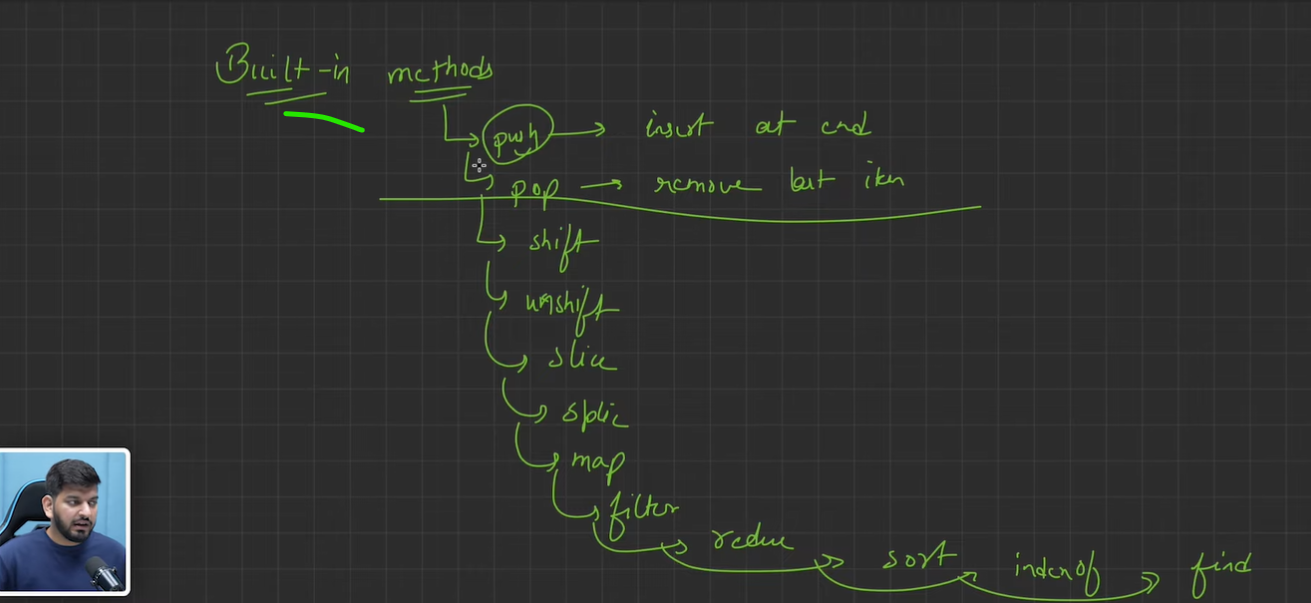 Built-in methods
push → insert at end
pop → remove last item
shift
unshift
slice
splic
map
filter
reduce
sort
indexof
find